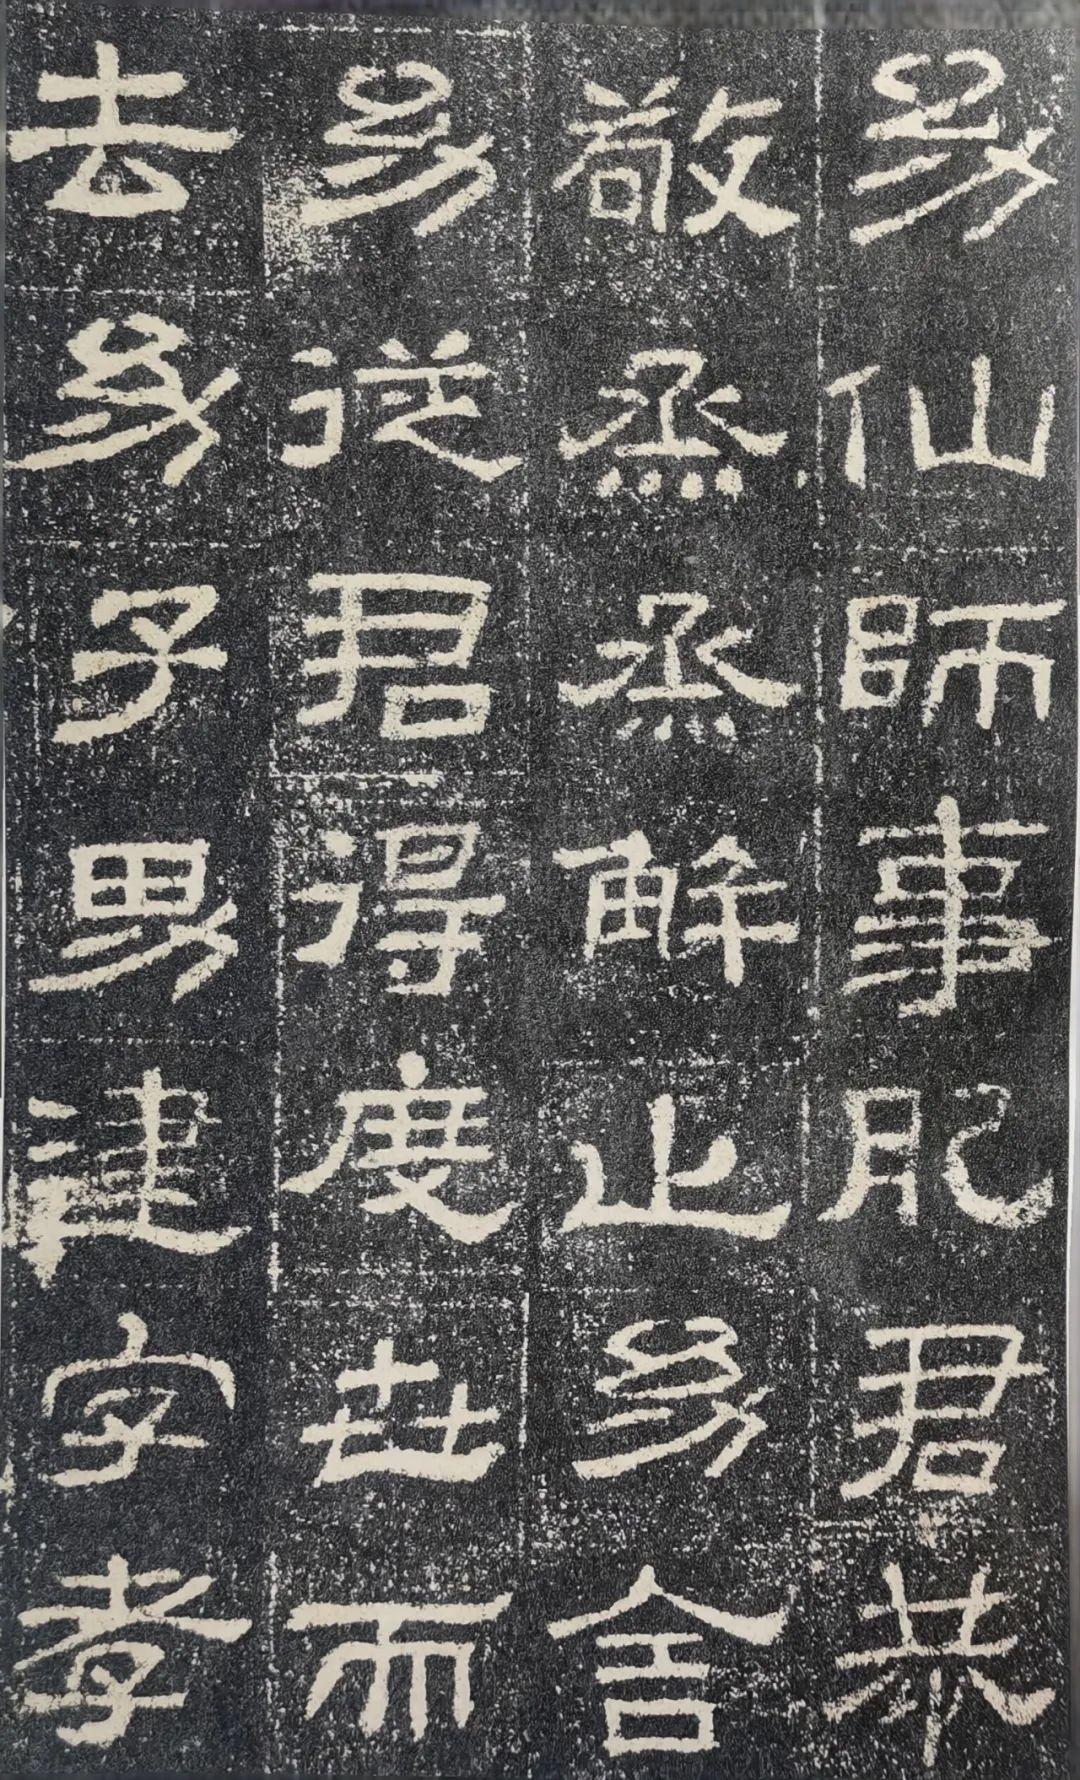 幼仙師事肥君恭
敬烝烝解止幼舍
幼從君得度世而
去幼子男建字孝